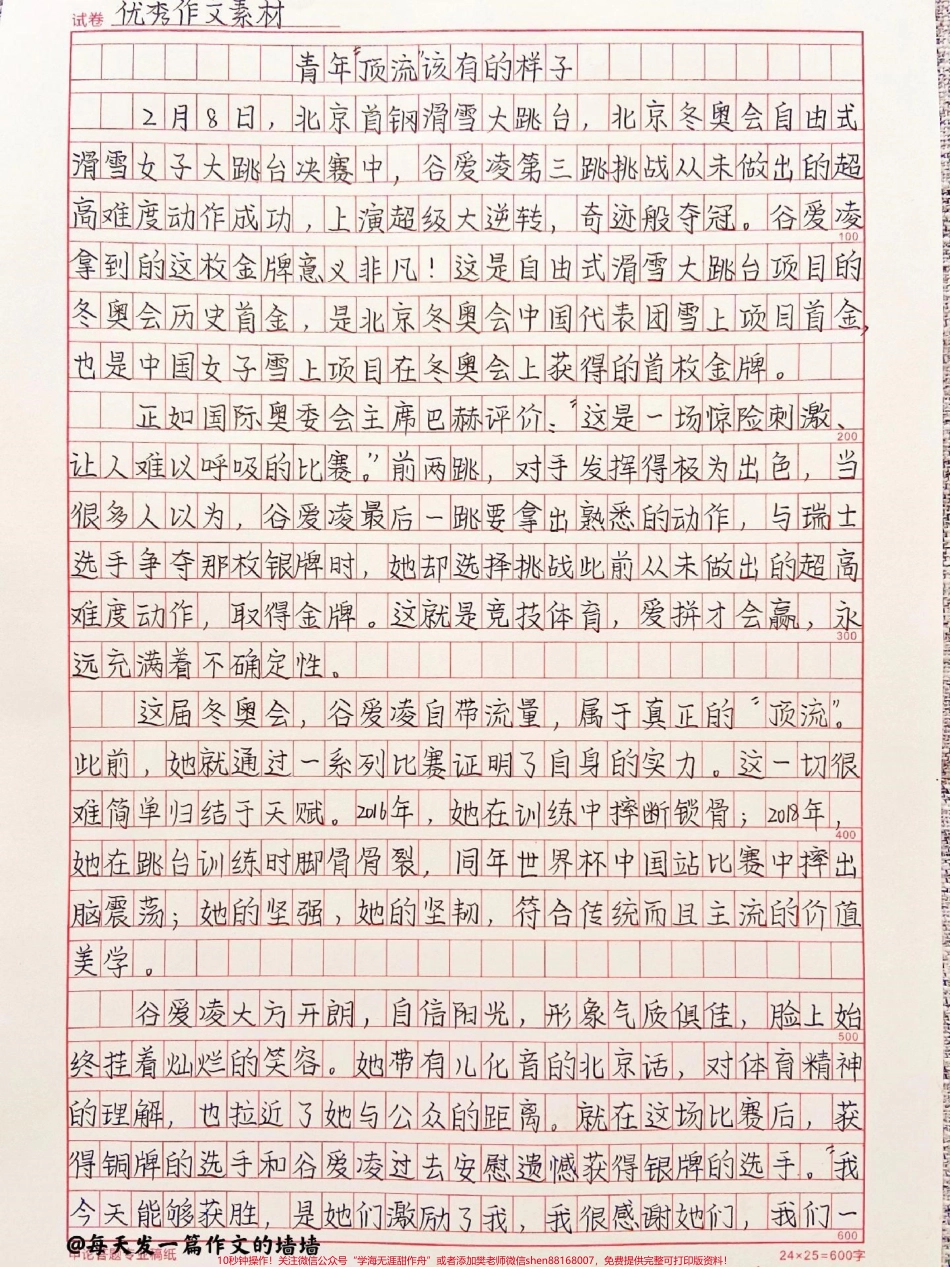 试卷 优秀作文素材
青年“顶流”该有的样子
2月8日，北京首钢滑雪大跳台，北京冬奥会自由式
滑雪女子大跳台决赛中，谷爱凌第三跳挑战从未做出的超
高难度动作成功，上演超级大逆转，奇迹般夺冠。谷爱凌
100
拿到的这枚金牌意义非凡！这是自由式滑雪大跳台项目的
冬奥会历史首金，是北京冬奥会中国代表团雪上项目首金，
也是中国女子雪上项目在冬奥会上获得的首枚金牌。
正如国际奥委会主席巴赫评价：“这是一场惊险刺激、
200
让人难以呼吸的比赛。”前两跳，对手发挥得极为出色，当
很多人以为，谷爱凌最后一跳要拿出熟悉的动作，与瑞士
选手争夺那枚银牌时，她却选择挑战此前从未做出的超高
难度动作，取得金牌。这就是竞技体育，爱拼才会赢，永
300
远充满着不确定性。
这届冬奥会，谷爱凌自带流量，属于真正的“顶流”。
此前，她就通过一系列比赛证明了自身的实力。这一切很
难简单归结于天赋。2016年，她在训练中摔断锁骨；2018年，
400
她在跳台训练时脚骨骨裂，同年世界杯中国站比赛中摔出
脑震荡；她的坚强，她的坚韧，符合传统而且主流的价值
美学。
谷爱凌大方开朗，自信阳光，形象气质俱佳，脸上始
500
终挂着灿烂的笑容。她带有儿化音的北京话，对体育精神
的理解，也拉近了她与公众的距离。就在这场比赛后，获
得铜牌的选手和谷爱凌过去安慰遗憾获得银牌的选手。“我
今天能够获胜，是她们激励了我，我很感谢她们，我们一
600
@每天发一篇作文的墙墙
申论答题专业稿纸 24×25=600字
10秒钟操作！关注微信公众号“学海无涯甜作舟”或者添加樊老师微信shen88168007，免费提供完整可打印版资料！